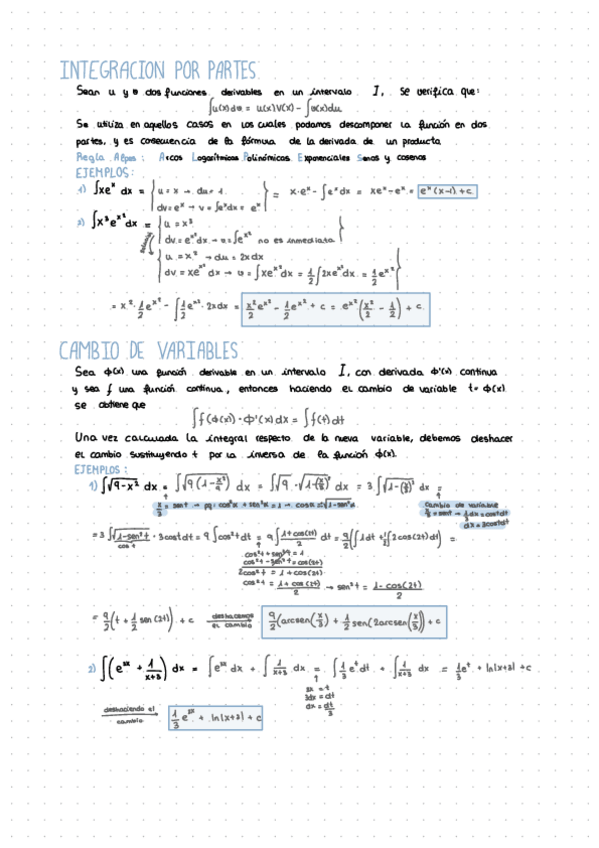 INTEGRACION POR PARTES
Sean u y v dos funciones derivables en un intervalo I, se verifica que:
∫u(x)dv = u(x)V(x) - ∫v(x)du
Se utiliza en aquellos casos en los cuales podamos descomponer la función en dos
partes, y es consecuencia de la fórmula de la derivada de un producto
Regla Alpes: Arcos Logarítmicas Polinómicas Exponenciales Senos y cosenos
EJEMPLOS:
1) ∫xeˣ dx = { u = x → du = 1 = x·eˣ - ∫eˣdx = xeˣ - eˣ = eˣ(x-1) + c
dv = eˣ → v = ∫eˣdx = eˣ }
2) ∫x³e^x² dx = { u = x³
dv = e^x² dx → v = ∫e^x² no es inmediata }
{ u = x² → du = 2xdx
dv = xe^x² dx → v = ∫xe^x² dx = 1/2 ∫2xe^x² dx = 1/2 e^x² }
= x²·1/2 e^x² - ∫1/2 e^x²·2xdx = x²/2 e^x² - 1/2 e^x² + c = e^x² (x²/2 - 1/2) + c
CAMBIO DE VARIABLES
Sea ϕ(x) una función derivable en un intervalo I, con derivada ϕ'(x) continua
y sea f una función continua, entonces haciendo el cambio de variable t = ϕ(x)
se obtiene que
∫f(ϕ(x))·ϕ'(x)dx = ∫f(t)dt
Una vez calculada la integral respecto de la nueva variable, debemos deshacer
el cambio sustituyendo t por la inversa de la función ϕ(x).
EJEMPLOS:
1) ∫√9-x² dx = ∫√9(1-x²/9) dx = ∫√9·√1-(x/3)² dx = 3∫√1-(x/3)² dx =
x/3 = sent → pq: cos²x + sen²x = 1 → cosx = √1-sen²x
cambio de variable
x/3 = sent → 1/3 dx = costdt
dx = 3costdt
= 3∫√1-sen²t · 3costdt = 9∫cos²t dt = 9∫1+cos(2t)/2 dt = 9/2(∫1dt + 1/2∫2cos(2t)dt) =
cost
cos²t + sen²t = 1
cos²t - sen²t = cos(2t)
2cos²t = 1 + cos(2t)
cos²t = 1 + cos(2t)/2 → sen²t = 1 - cos(2t)/2
= 9/2(t + 1/2 sen(2t)) + c deshacemos el cambio 9/2(arcsen(x/3) + 1/2 sen(2arcsen(x/3)) + c
2) ∫(e³ˣ + 1/x+3) dx = ∫e³ˣ dx + ∫1/x+3 dx = ∫1/3 eᵗdt + ∫1/x+3 dx = 1/3 eᵗ + ln|x+3| + c
3x = t
3dx = dt
dx = dt/3
deshaciendo el cambio 1/3 e³ˣ + ln|x+3| + c